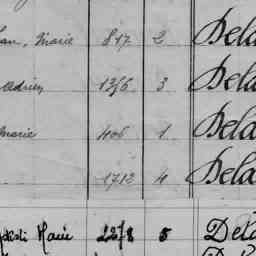 Marie 817 2 Dela
Adrien 1356 3 Dela
Marie 406 1 Dela
1712 4 Dela
Marie 2278 5 Dela